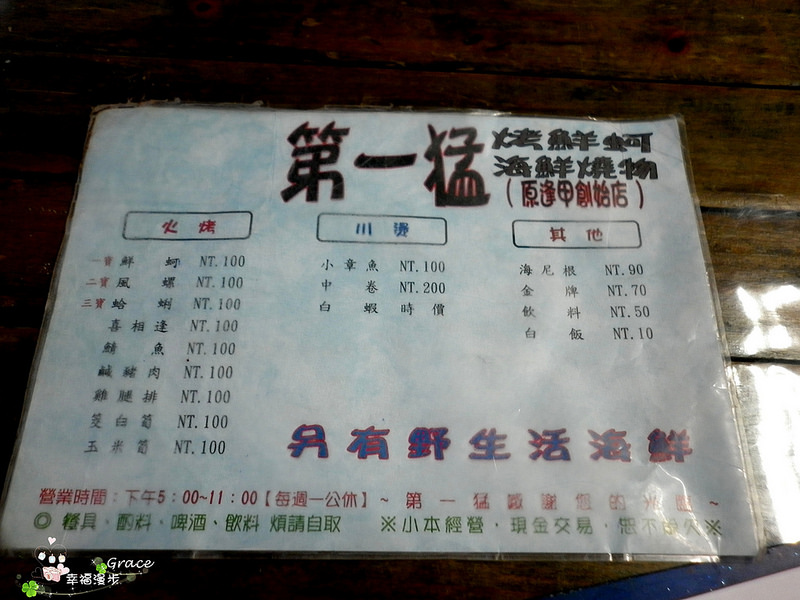 第一猛
烤鮮蚵
海鮮燒物
(原逢甲創始店)
火烤
一寶 鮮蚵 NT.100
二寶 風螺 NT.100
三寶 蛤蜊 NT.100
喜相逢 NT.100
鯖魚 NT.100
鹹豬肉 NT.100
雞腿排 NT.100
茭白筍 NT.100
玉米筍 NT.100
川燙
小章魚 NT.100
中卷 NT.200
白蝦 時價
其他
海尼根 NT.90
金牌 NT.70
飲料 NT.50
白飯 NT.10
另有野生活海鮮
營業時間：下午5：00~11：00【每週一公休】~第一猛感謝您的光臨~
◎餐具、酌料、啤酒、飲料 煩請自取 ※小本經營．現金交易．恕不賒欠※
Grace
幸福漫步